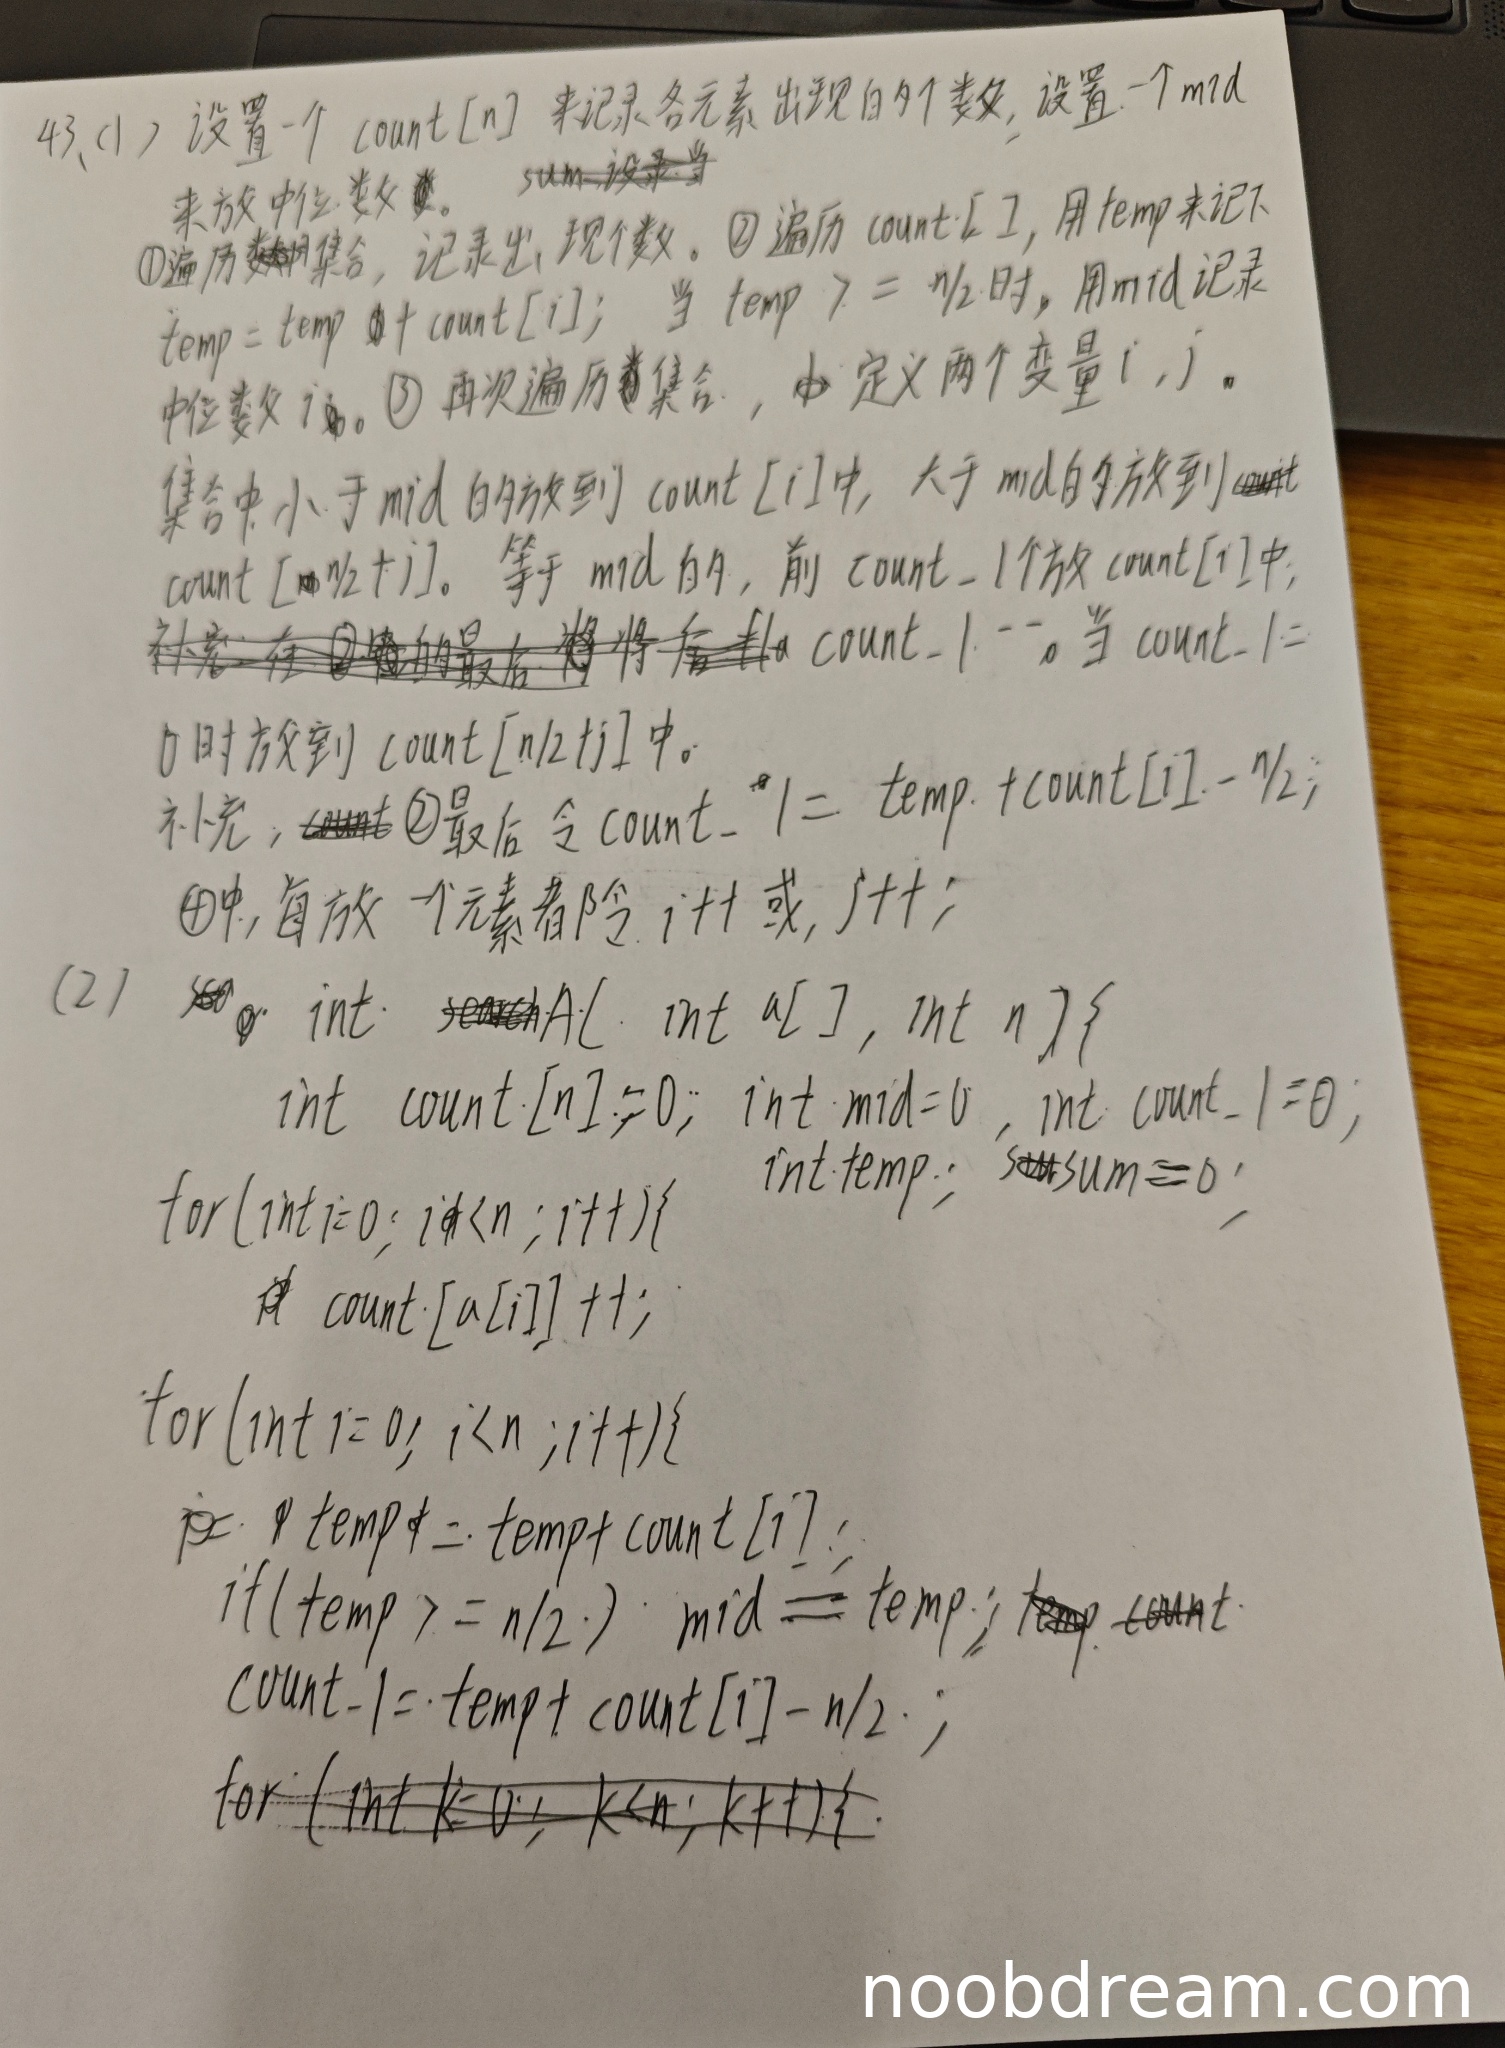 43、(1) 设置一个 count[n] 来记录各元素出现的个数，设置一个mid
来放中位数。
①遍历集合，记录出现个数。②遍历 count[ ]，用temp来记下
temp = temp + count[i]; 当 temp >= n/2时，用mid记录
中位数 i。③再次遍历集合，定义两个变量 i, j。
集合中小于mid的放到 count[i]中，大于mid的放到
count[n/2+j]。等于mid的，前 count_1个放count[i]中，
count_1--。当 count_1=
0时放到 count[n/2+j]中。
补充，②最后令count_1= temp+count[i]-n/2;
④中，每放一个元素都令 i++ 或 j++;
(2) int A( int a[ ], int n ){
int count[n]=0; int mid=0, int count_1=0;
int temp; sum=0;
for(int i=0; i<n; i++){
count[a[i]]++;
for(int i=0; i<n; i++){
temp = temp+count[i];
if(temp >= n/2) mid = temp;
count_1= temp+ count[i]-n/2;
noobdream.com